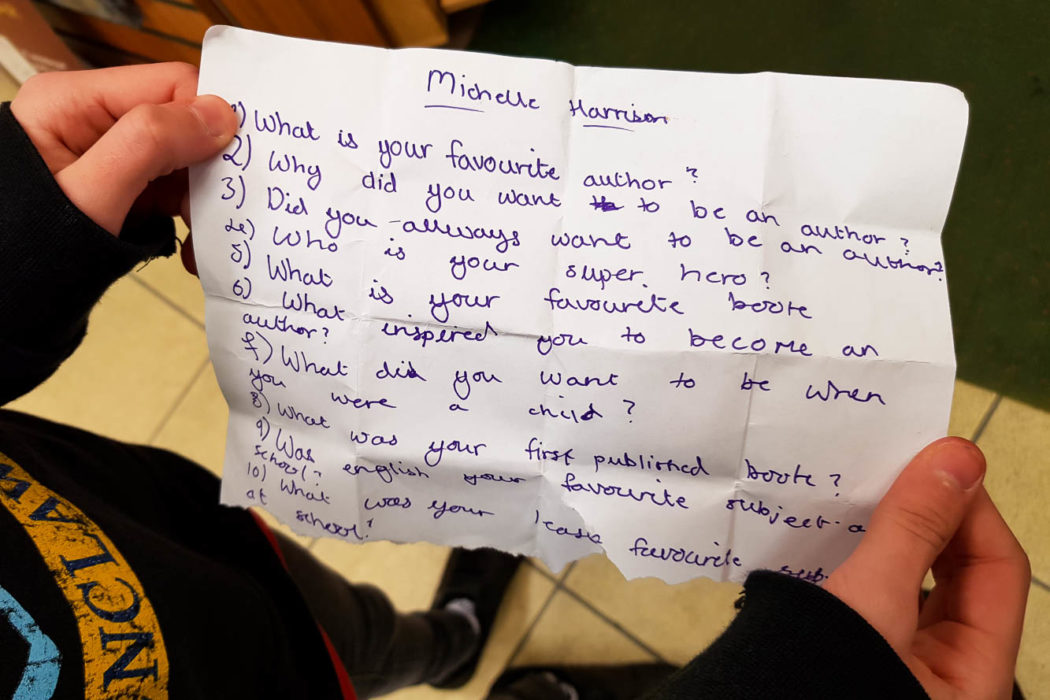 Michelle Harrison
1) What is your favourite author ?
2) Why did you want to be an author ?
3) Did you allways want to be an author?
4) Who is your super hero ?
5) What is your favourite book
6) What inspired you to become an
author?
7) What did you want to be when
you were a child ?
8) What was your first published book ?
9) Was english your favourite subject a
school?
10) What was your least favourite sub
at school?
NCLAW